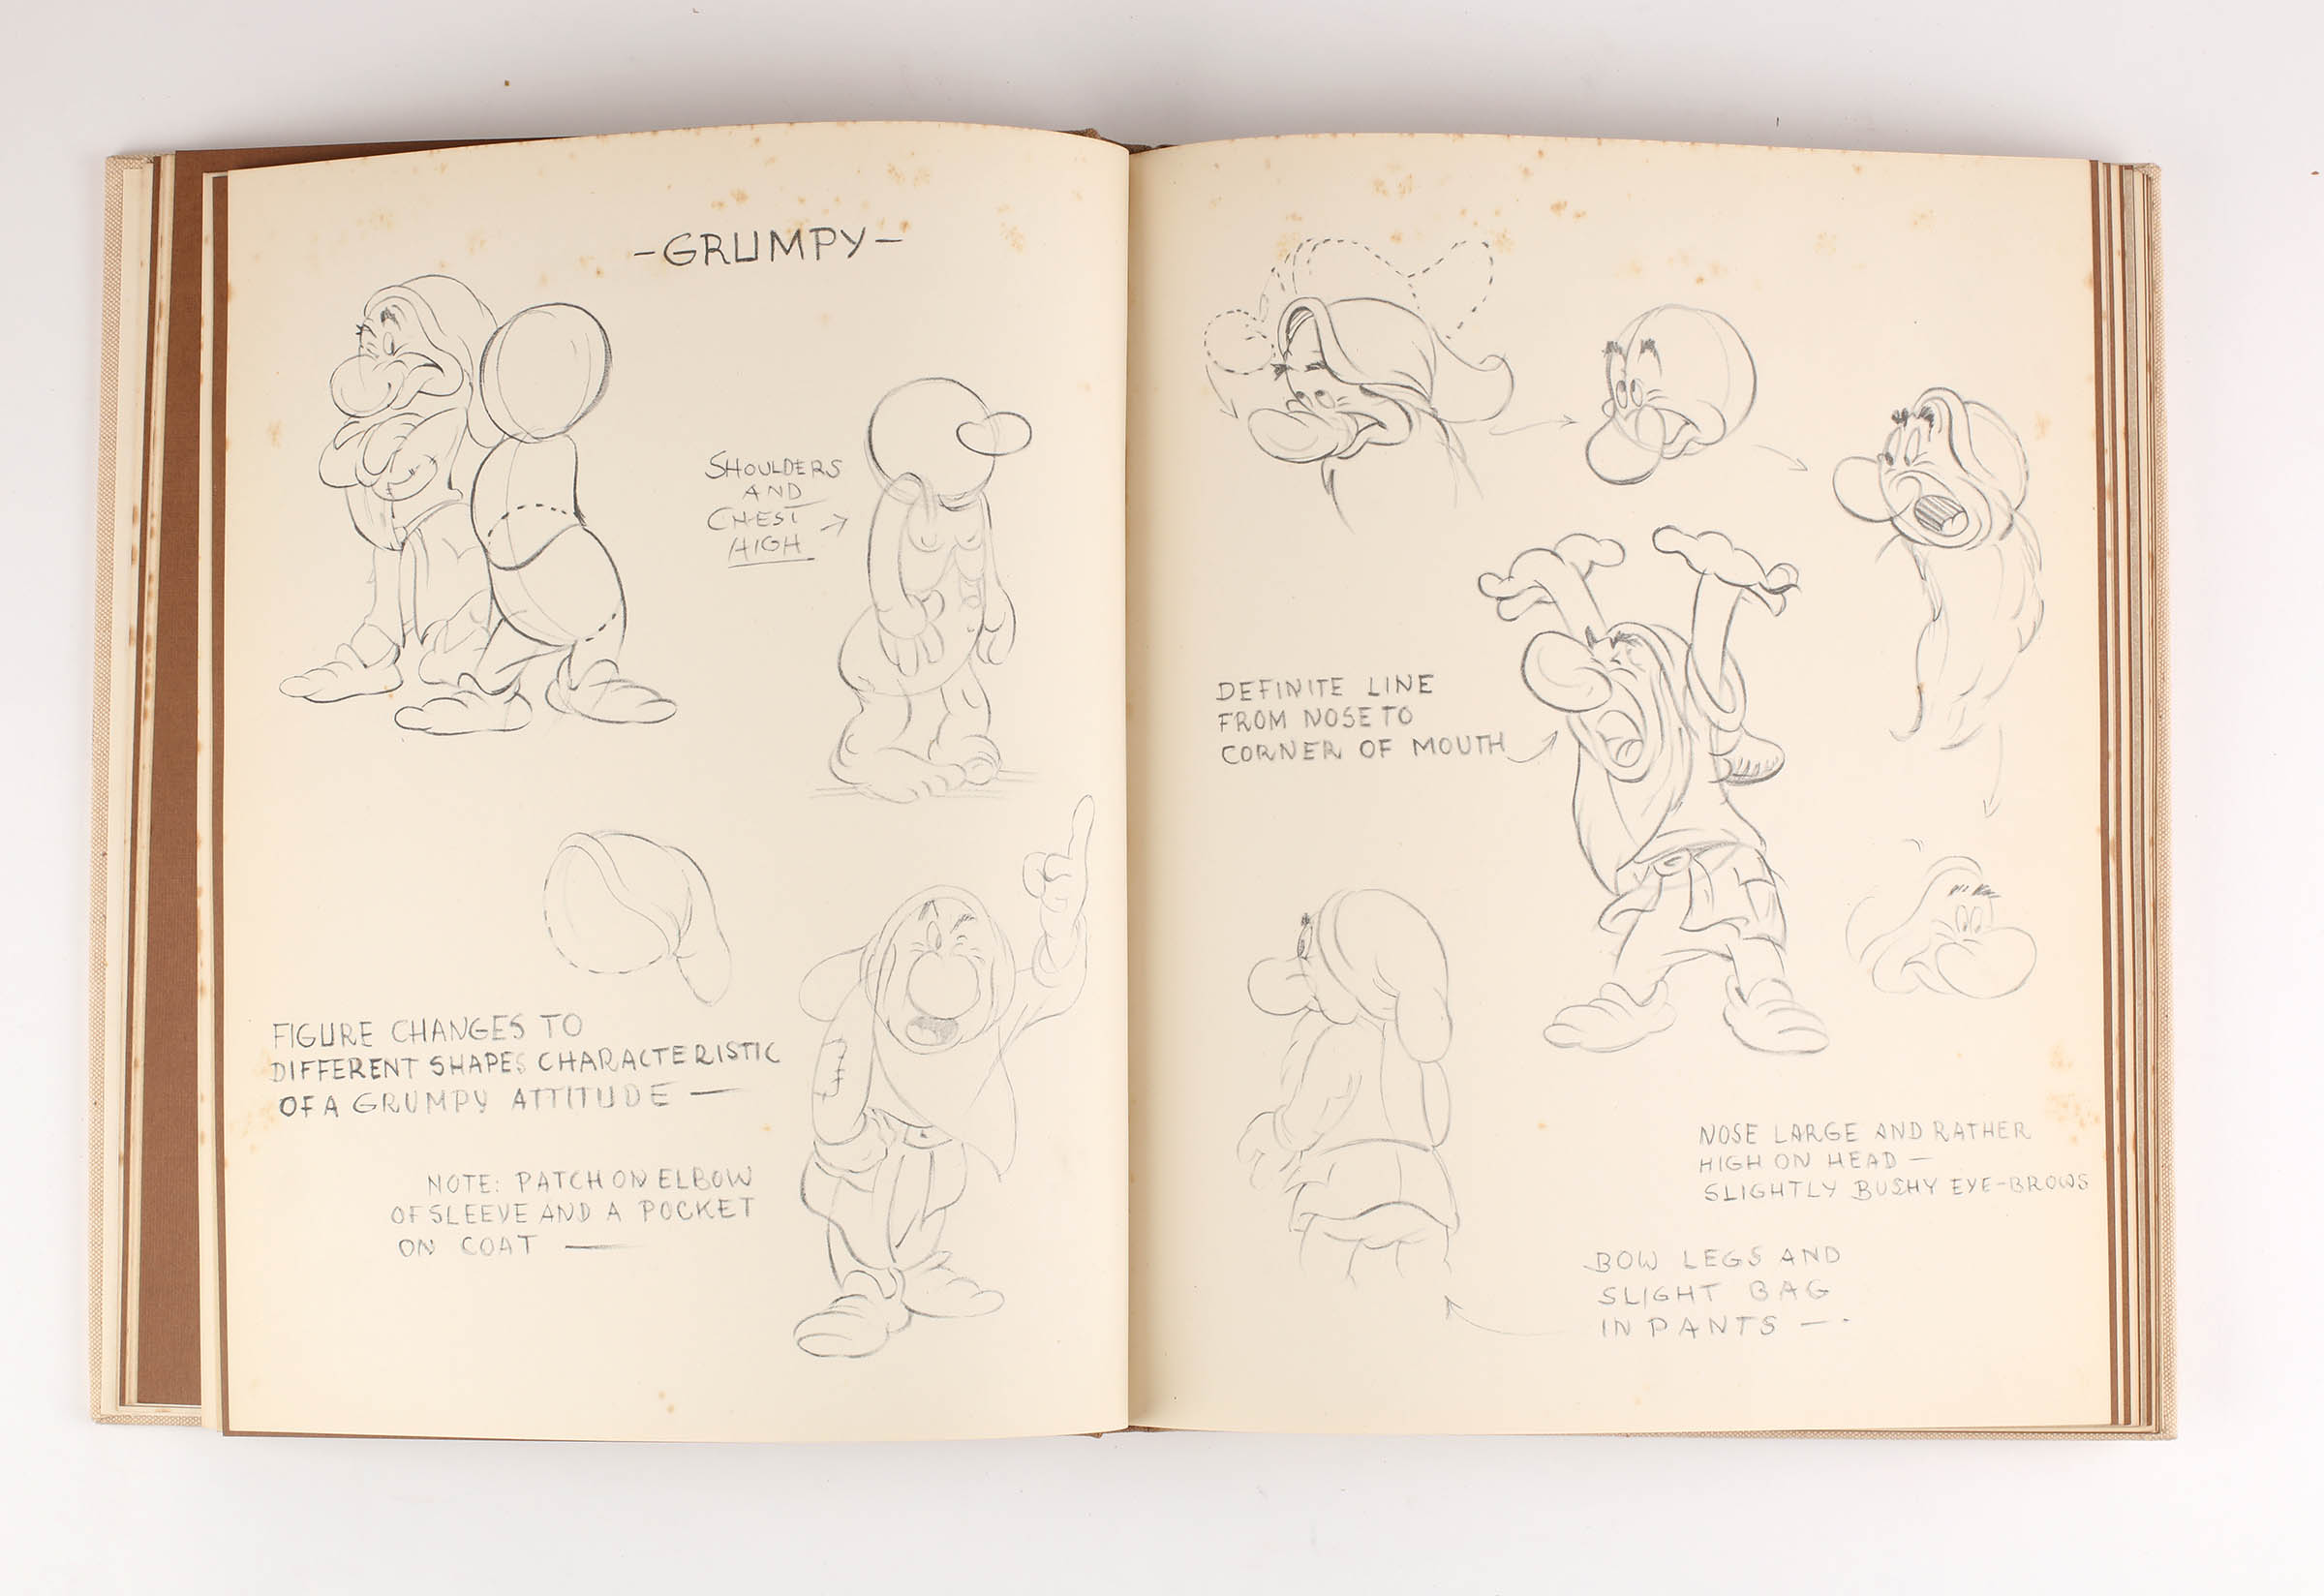 -GRUMPY-
SHOULDERS
AND
CHEST
HIGH
FIGURE CHANGES TO
DIFFERENT SHAPES CHARACTERISTIC
OF A GRUMPY ATTITUDE —
NOTE: PATCH ON ELBOW
OF SLEEVE AND A POCKET
ON COAT —
DEFINITE LINE
FROM NOSE TO
CORNER OF MOUTH
NOSE LARGE AND RATHER
HIGH ON HEAD —
SLIGHTLY BUSHY EYE-BROWS
BOW LEGS AND
SLIGHT BAG
IN PANTS —-